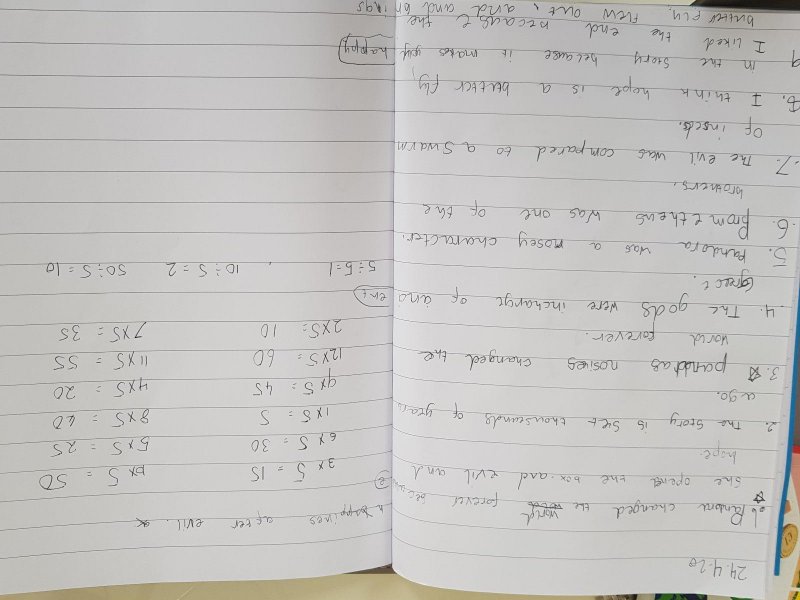 24.4.20
1. Pandora changed the world forever because
she opened the box and evil and
hope.
2. The story is set thousands of years
ago.
3. pandoras nosiyes changed the
world forever.
4. The gods were incharge of and
Greece.
5. Pandora was a nosey character.
6. Prometheus was one of the
brothers.
7. The evil was compared to a swarm
of insects.
8. I think hope is a butter fly,
in the story because it makes you happy
9 I liked the end because the
butter fly, flew out, and brings
happines after evil.
3×5 = 15 10×5 = 50
6×5 = 30 5×5 = 25
1×5 = 5 8×5 = 40
9×5 = 45 4×5 = 20
12×5 = 60 11×5 = 55
2×5 = 10 7×5 = 35
5÷5=1 10÷5=2 50÷5=10